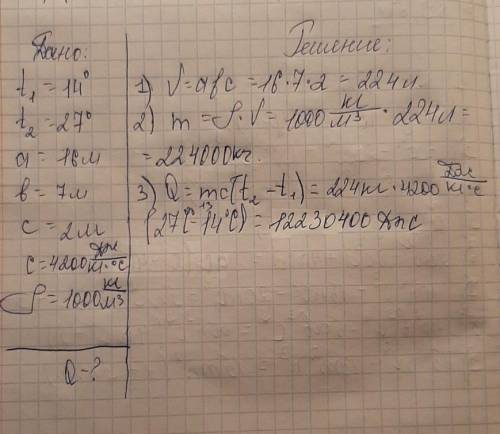 Дано:
t₁ = 14°
t₂ = 27°
a = 16 м
b = 7 м
c = 2 м
c = 4200 Дж/кг·°C
ρ = 1000 кг/м³
Q - ?
Решение:
1) V = abc = 16 · 7 · 2 = 224 л.
2) m = ρ · V = 1000 кг/м³ · 224 л =
= 224000 кг.
3) Q = mc(t₂ - t₁) = 224 кг · 4200 Дж/кг·°C
13
(27°C - 14°C) = 12230400 Дж